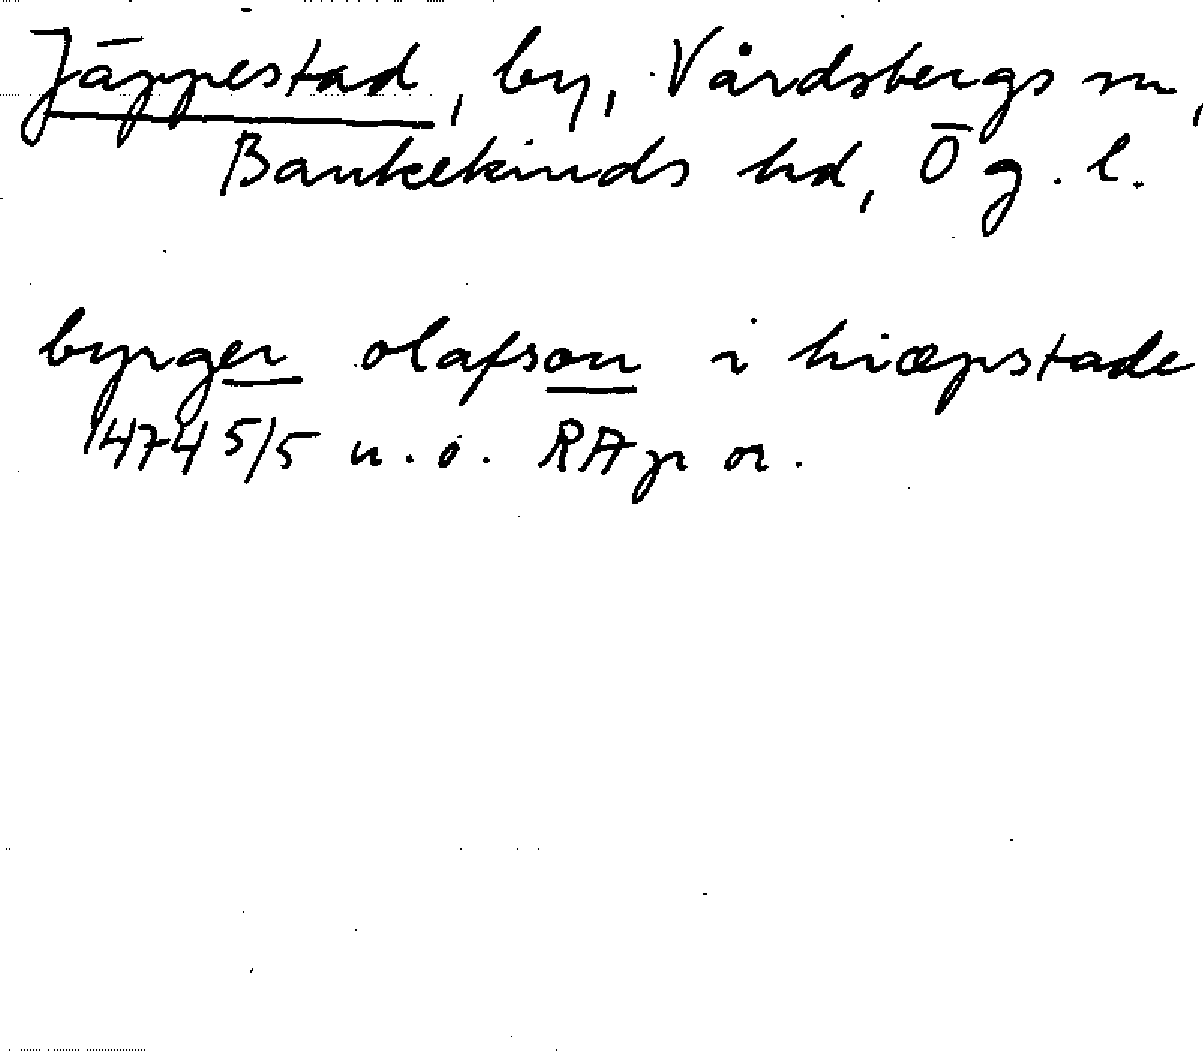 Jäppestad, by, Vårdsbergs sn,
Bankekinds hd, Ög. l.
byrger olafson i hiæpstade
1474 5/5 u.o. RAp or.